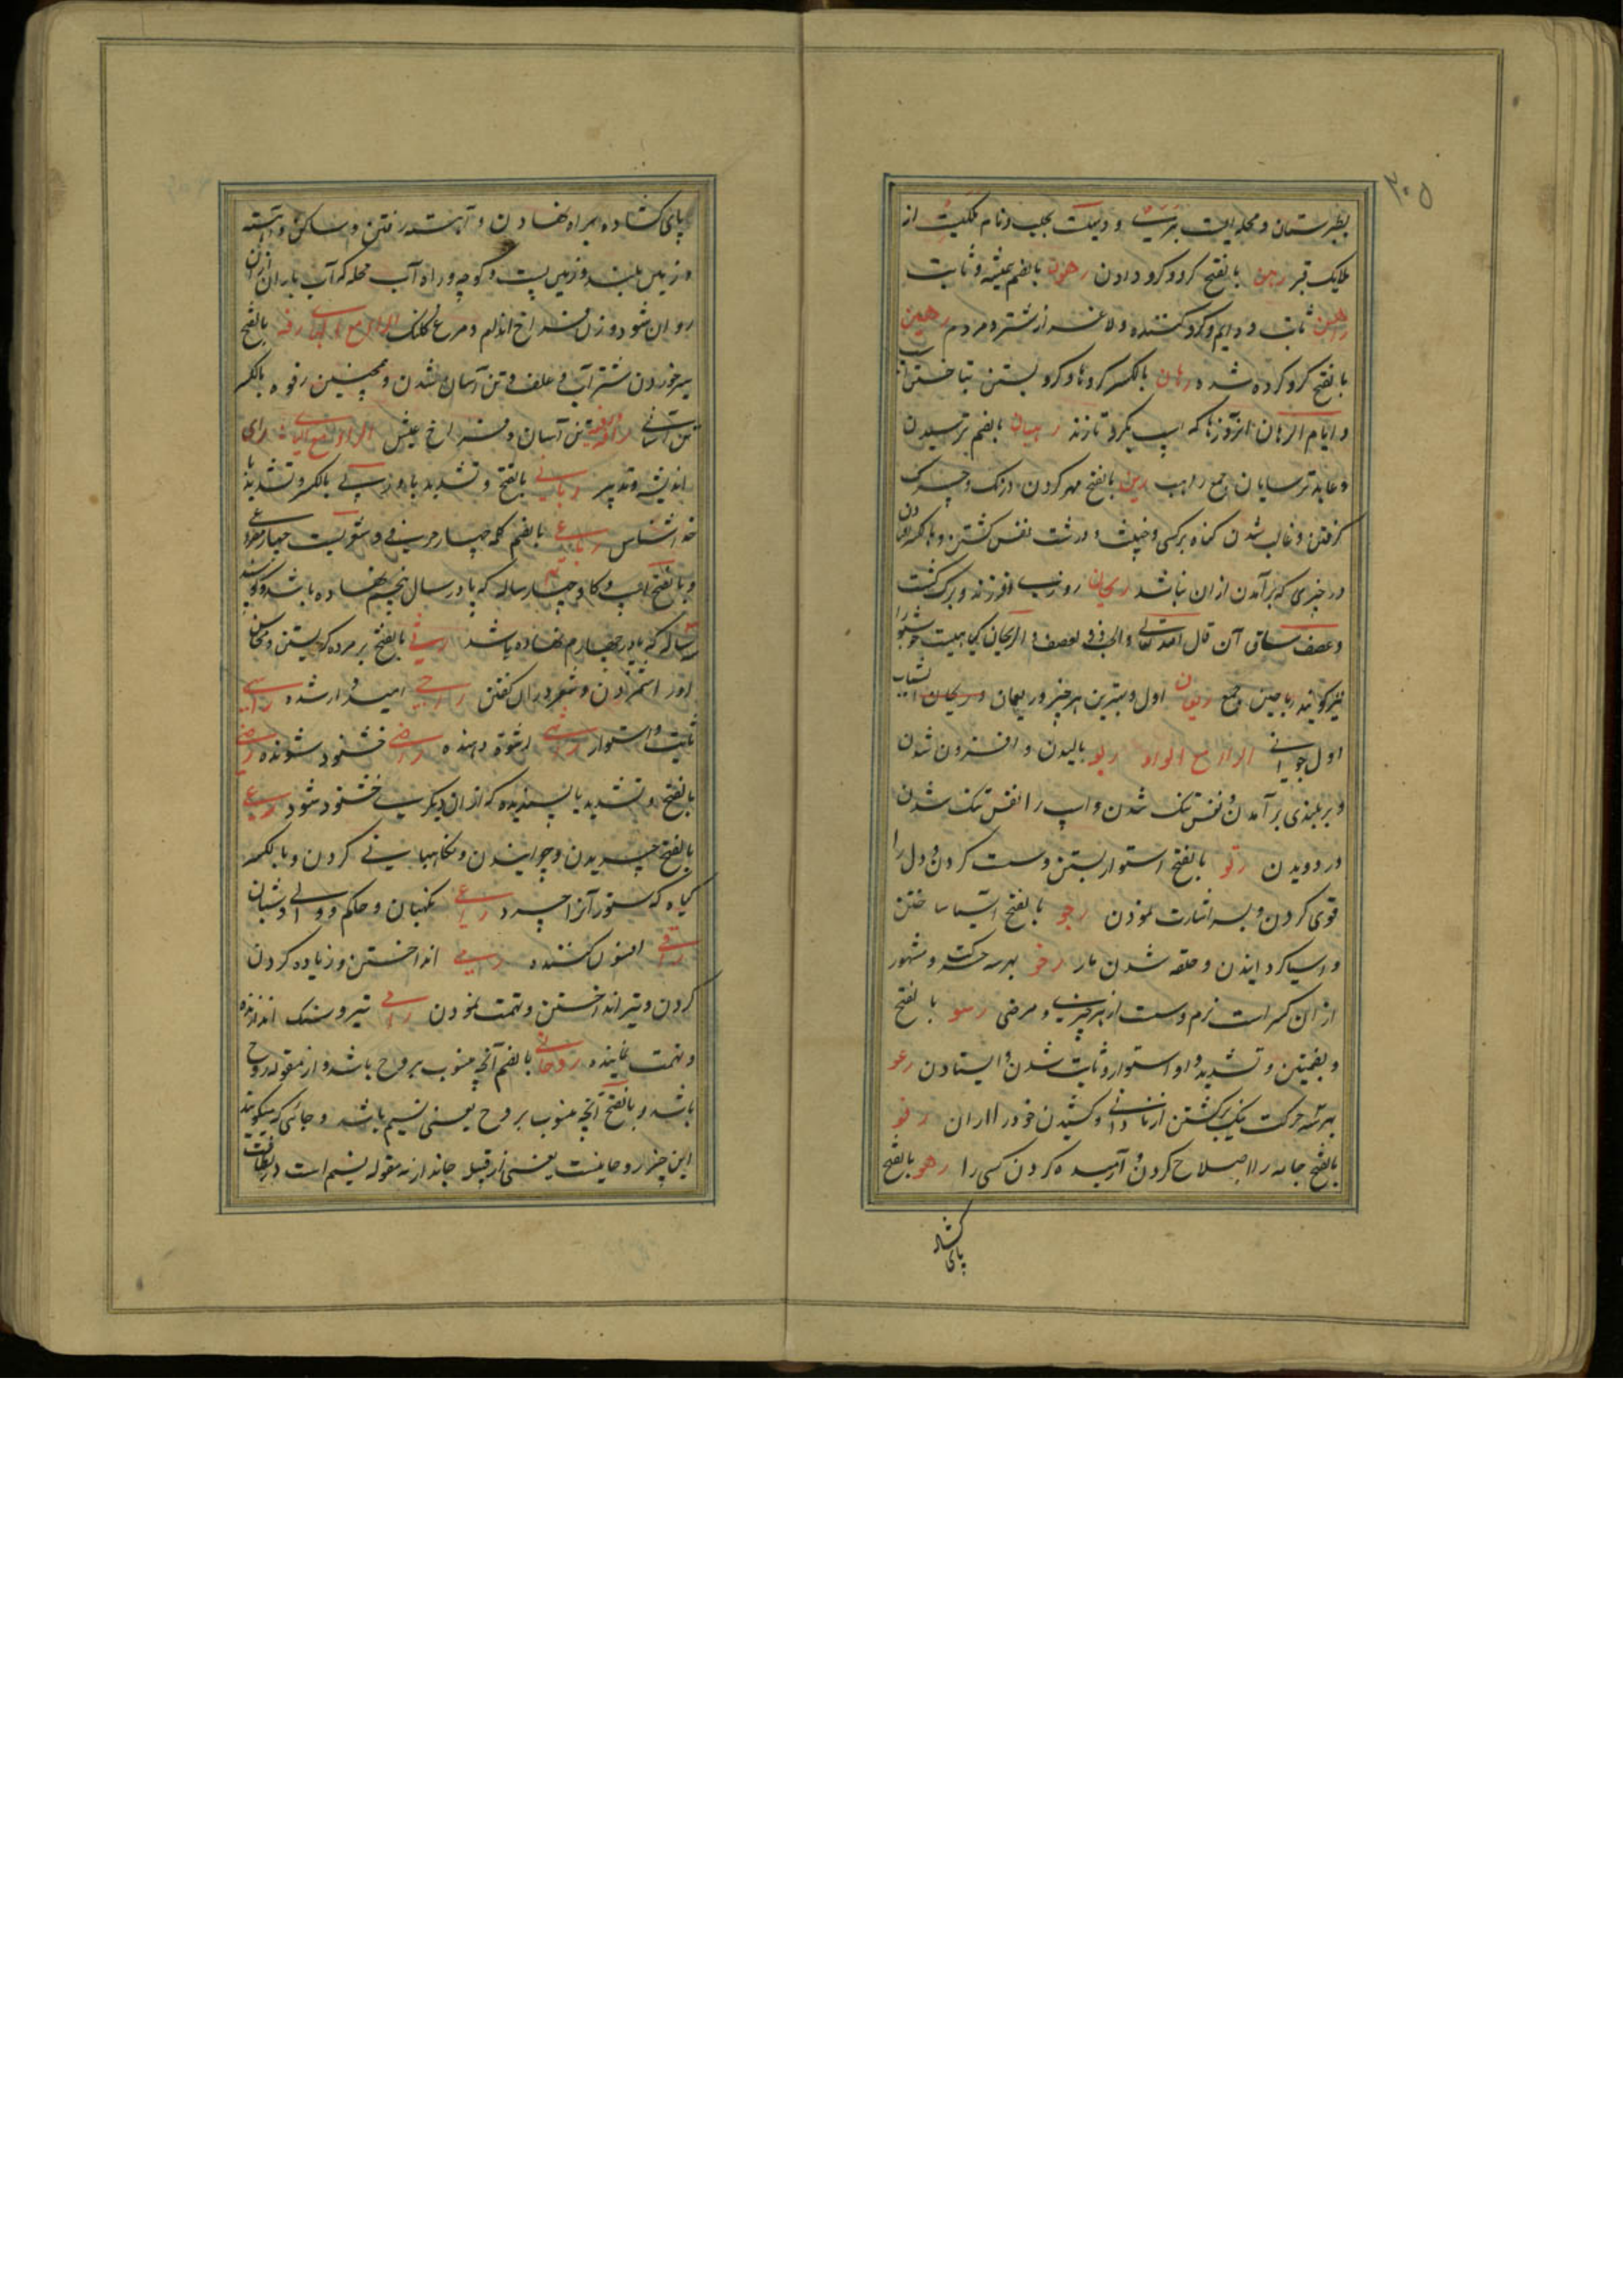 ۳۰۵
بطبرستان و محله ایست و دیهیست بحلب و نام ملکیست از
ملایک قبر رهن بالفتح گرو و گرو دادن رهون بالضم همیشه و ثابت
راهن ثابت و دایم و گرو کننده و لاغر از شتر و مردم رهین
بالفتح گرو کرده شده رهان بالکسر گروها و گرو بستن بتاختن
و ایام الرهان آنروزها که اسپ بگرو تازند رهبان بالضم ترسیدن
و عابد ترسایان جمع راهب رین بالفتح مهر کردن و زنگ و چرک
گرفتن و غالب شدن گناه بر کسی و خبیث و درشت نفس گشتن
در چیزی که برآمدن از آن نباشد ریحان روزی و فرزند و برگ کشت
و عصف ساق آن قال الله تعالی والحب ذو العصف و الریحان گیاهیست خوشبو
نیز گویند ریاحین جمع ریعان اول و بهترین هر چیز و ریعان الشباب
اول جوانی الراء مع الواو ربو بالیدن و افزون شدن
و بر بلندی برآمدن و نفس تنگ شدن و اسپ را نفس تنگ شدن
در دویدن رتو بالفتح استوار بستن و سست کردن و دل را
قوی کردن و بسر اشارت نمودن رحو بالفتح آسیا ساختن
و آسیا گردانیدن و حلقه شدن مار رخو بهر سه حرکت و مشهور
از آن کسر است نرم و سست از هر چیزی و مرضی رسو بالفتح
و بضمتین و تشدید واو استوار و ثابت شدن و ایستادن رعو
بهر سه حرکت نیک برگشتن از نادانی و کشیدن خود را از آن رفو
بالفتح جامه را اصلاح کردن و آرمیده کردن کسی را رهو بالفتح
پای گشاده
پای گشاده براه نهادن و آهسته رفتن و ساکن و آهسته
و زمین بلند و زمین پست و کوچه و راه آب محله که آب باران از آن
روان شود و زن فراخ اندام و مرغ کلنگ الراء مع الهاء رفه بالفتح
سیر خوردن شتر آب و علف و تن آسان شدن و همچنین رفوه بالکسر
تن آسانی رافه تن آسان و فراخ عیش الراء مع الیاء رای
اندیشه و تدبیر ربانی بالفتح و تشدید با و ربی بالکسر و تشدید با
خداشناس رباعی بالضم کلمه چهار حرفی و شعریست چهار مصرع
و بالفتح اسپ و گاو چهار ساله که پا در سال پنجم نهاده باشد و گوسپند
سه ساله که پا در چهارم نهاده باشد رثی بالفتح بر مرده گریستن و محاسن
او را شمردن و شعر در آن گفتن راجی امیدوار شده راسی
ثابت و استوار راشی رشوة دهنده راضی خشنود شونده رضی
بالفتح و تشدید یا پسندیده که از آن دیگری خشنود شود رعی
بالفتح چریدن و چرانیدن و نگاهبانی کردن و بالکسر
گیاه که ستور آنرا چرد راعی نگهبان و حاکم و والی و شبان
راقی افسون کننده رمی انداختن و زیاده کردن
کردن و تیر انداختن و تهمت نمودن رامی تیر و سنگ اندازنده
و تهمت نماینده روحانی بالضم آنچه منسوب بروح باشد و از مقوله روح
باشد و بالفتح آنچه منسوب بروح یعنی نسیم باشد و جائی که میگویند
این چیز روحانیست یعنی از قبیل جاندار نه مقوله نسیم است در لطافت